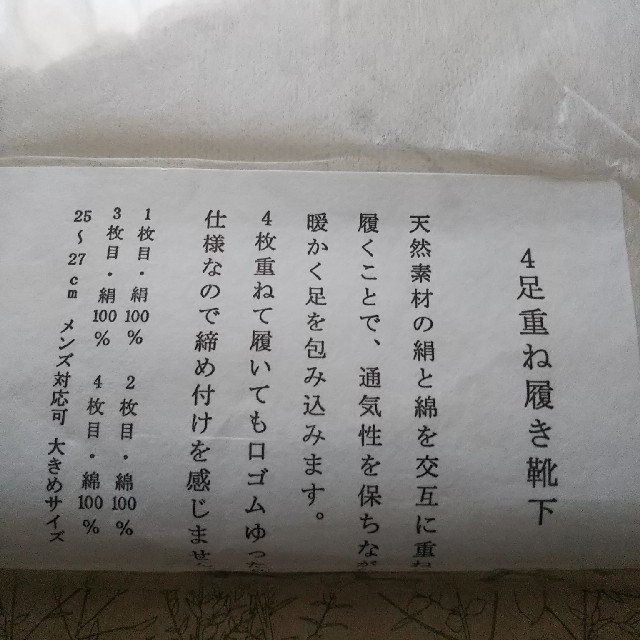 4足重ね履き靴下
天然素材の絹と綿を交互に重ね
履くことで、通気性を保ちなが
暖かく足を包み込みます。
4枚重ねて履いても口ゴムゆった
仕様なので締め付けを感じませ
1枚目・絹100% 2枚目・綿100%
3枚目・絹100% 4枚目・綿100%
25～27cm メンズ対応可 大きめサイズ